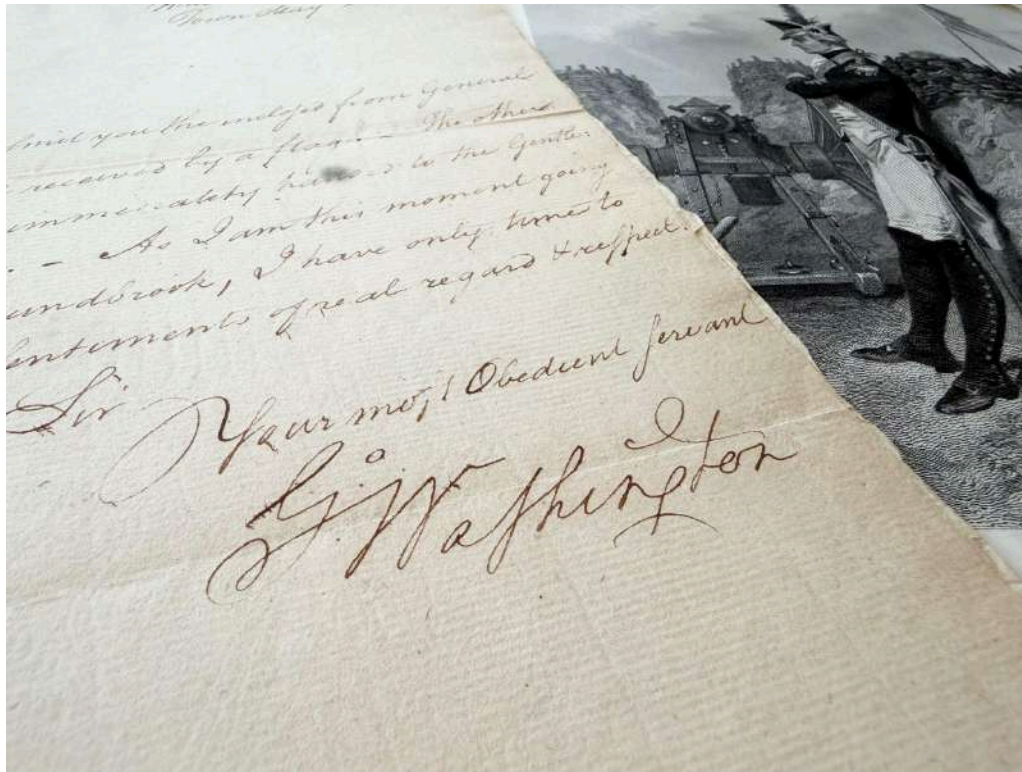 Town May
you the enclosed from General
received by a flag. – The other
to the Gentle:
. – As I am this moment going
undbrook, I have only time to
entiments of real regard & respect.
Sir
Your most Obedient Servant
G. Washington